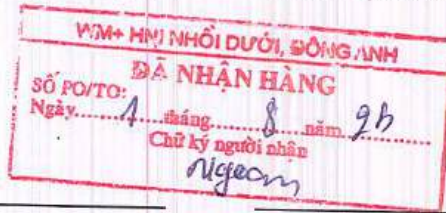 WM+ HNI NHỒI DƯỚI, ĐÔNG ANH
ĐÃ NHẬN HÀNG
SỐ PO/TO:
Ngày.......1.....tháng.......8.......năm..2
Chữ ký người nhận